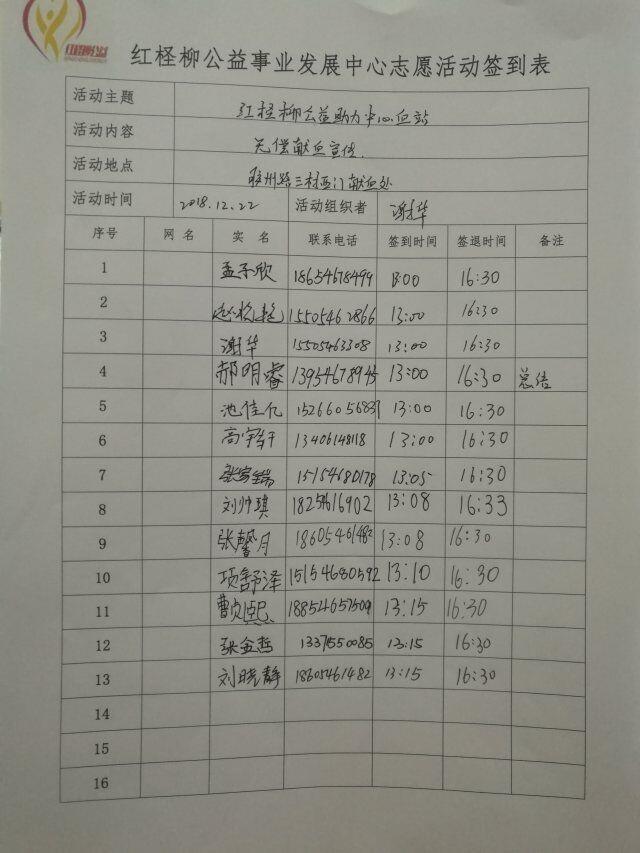 红柽柳公益事业发展中心志愿活动签到表
活动主题 红柽柳公益助力中心血站
活动内容 无偿献血宣传.
活动地点 胶州路三村西门献血处
活动时间 2018.12.22 活动组织者 谢华
序号 网 名 实 名 联系电话 签到时间 签退时间 备注
1 孟子欣 18654678499 13:00 16:30
2 15505462866 13:00 16:30
3 谢华 15505463308 13:00 16:30
4 郝明睿 13954678945 13:00 16:30 总结
5 池佳亿 15266056837 13:00 16:30
6 高宇轩 13406148118 13:00 16:30
7 张家瑞 15154680178 13:05 16:30
8 刘帅琪 18254616902 13:08 16:33
9 张馨月 18605461482 13:08 16:30
10 项舒泽 15154680592 13:10 16:30
11 曹贞熙 18854657509 13:15 16:30
12 张金哲 1337550085 13:15 16:30
13 刘晓静 18605461482 13:15 16:30
14
15
16